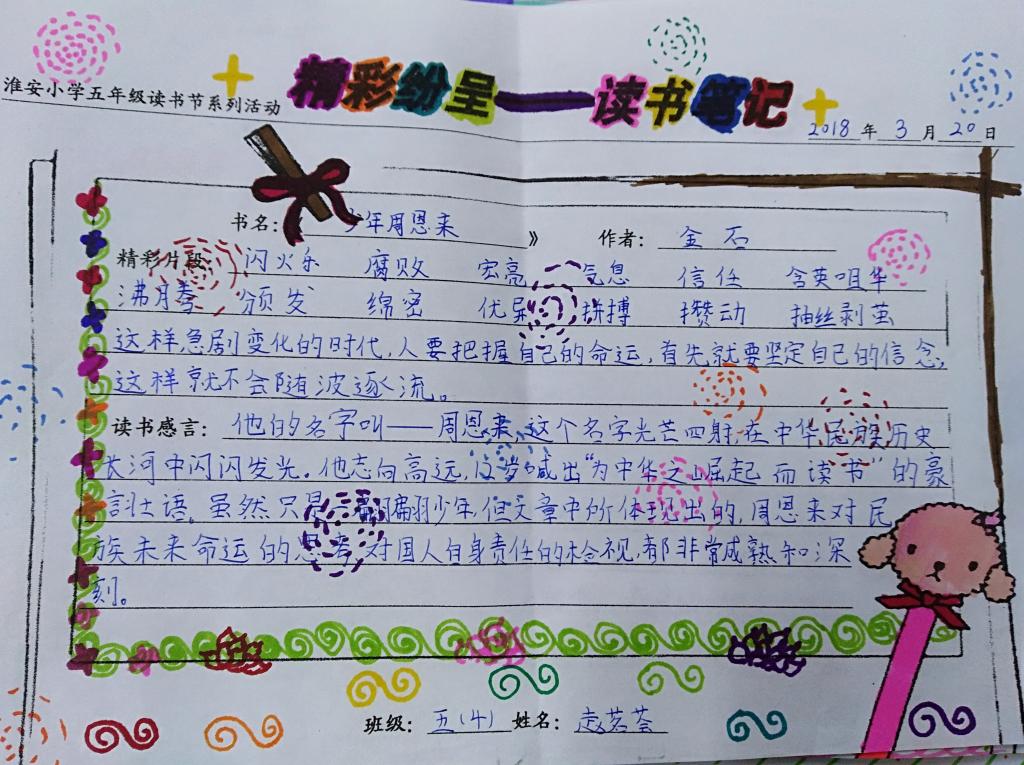 精彩纷呈——读书笔记
淮安小学五年级读书节系列活动
2018年3月20日
书名: 少年周恩来》 作者: 金石
精彩片段: 闪火乐 腐败 宏亮 气息 信任 含英咀华
沸月季 颁发 绵密 优异 拼搏 攒动 抽丝剥茧
这样急剧变化的时代,人要把握自己的命运,首先就要坚定自己的信念,
这样就不会随波逐流。
读书感言: 他的名字叫——周恩来,这个名字光芒四射,在中华民族历史
大河中闪闪发光。他志向高远,12岁喊出“为中华之崛起而读书”的豪
言壮语。虽然只是一翩翩少年,但文章中所体现出的,周恩来对民
族未来命运的思考,对国人自身责任的检视,都非常成熟和深
刻。
班级: 五(4) 姓名: 赵若荟